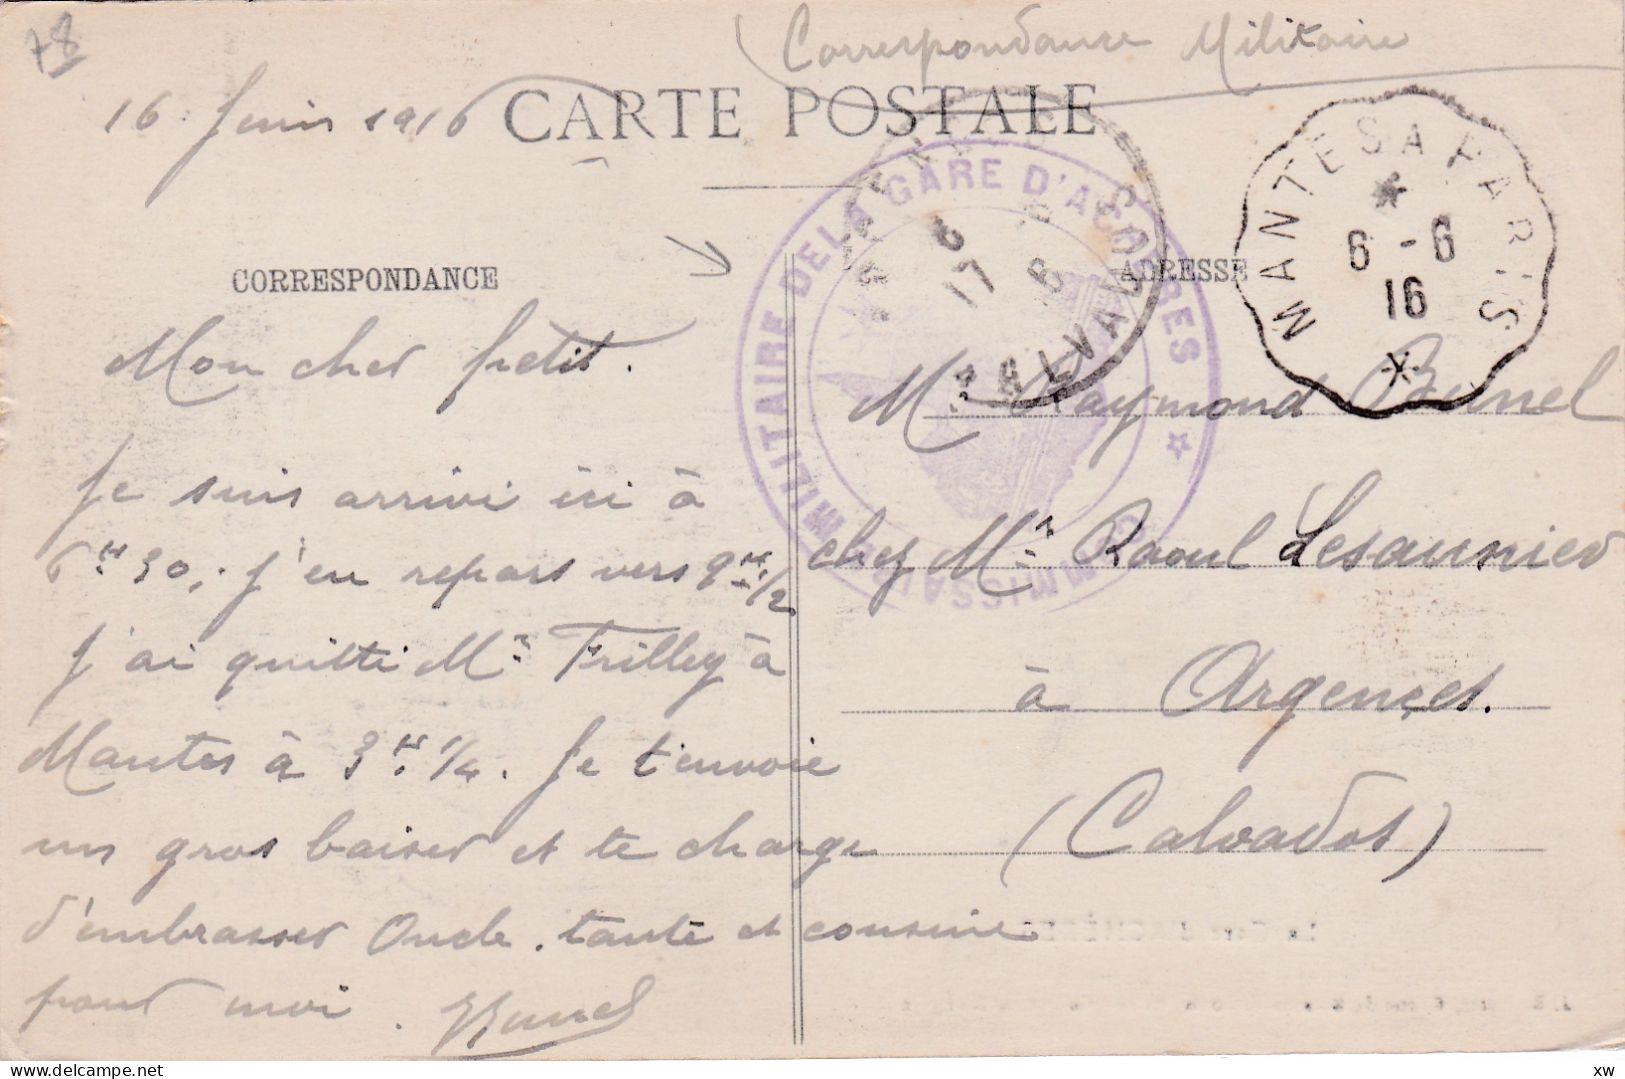 78
Correspondance Militaire
16 Juin 1916
CARTE POSTALE
CORRESPONDANCE
ADRESSE
MILITAIRE DE LA GARE D'ACHERES
COMMISSAIRE
ARGENCES
CALVADOS
6
17 6
MANTES A PARIS
6 - 6
16
Mon cher petit.
Je suis arrivé ici à
6 H 30, j'en repars vers 9 H 1/2
J'ai quitté Mr Frilley à
Mantes à 3 H 1/4. Je t'envoie
un gros baiser et te charge
d'embrasser Oncle, tante et cousine
pour moi.
M Raymond Bunel
chez Mr Raoul Lesaunier
à Argences.
(Calvados)
xw